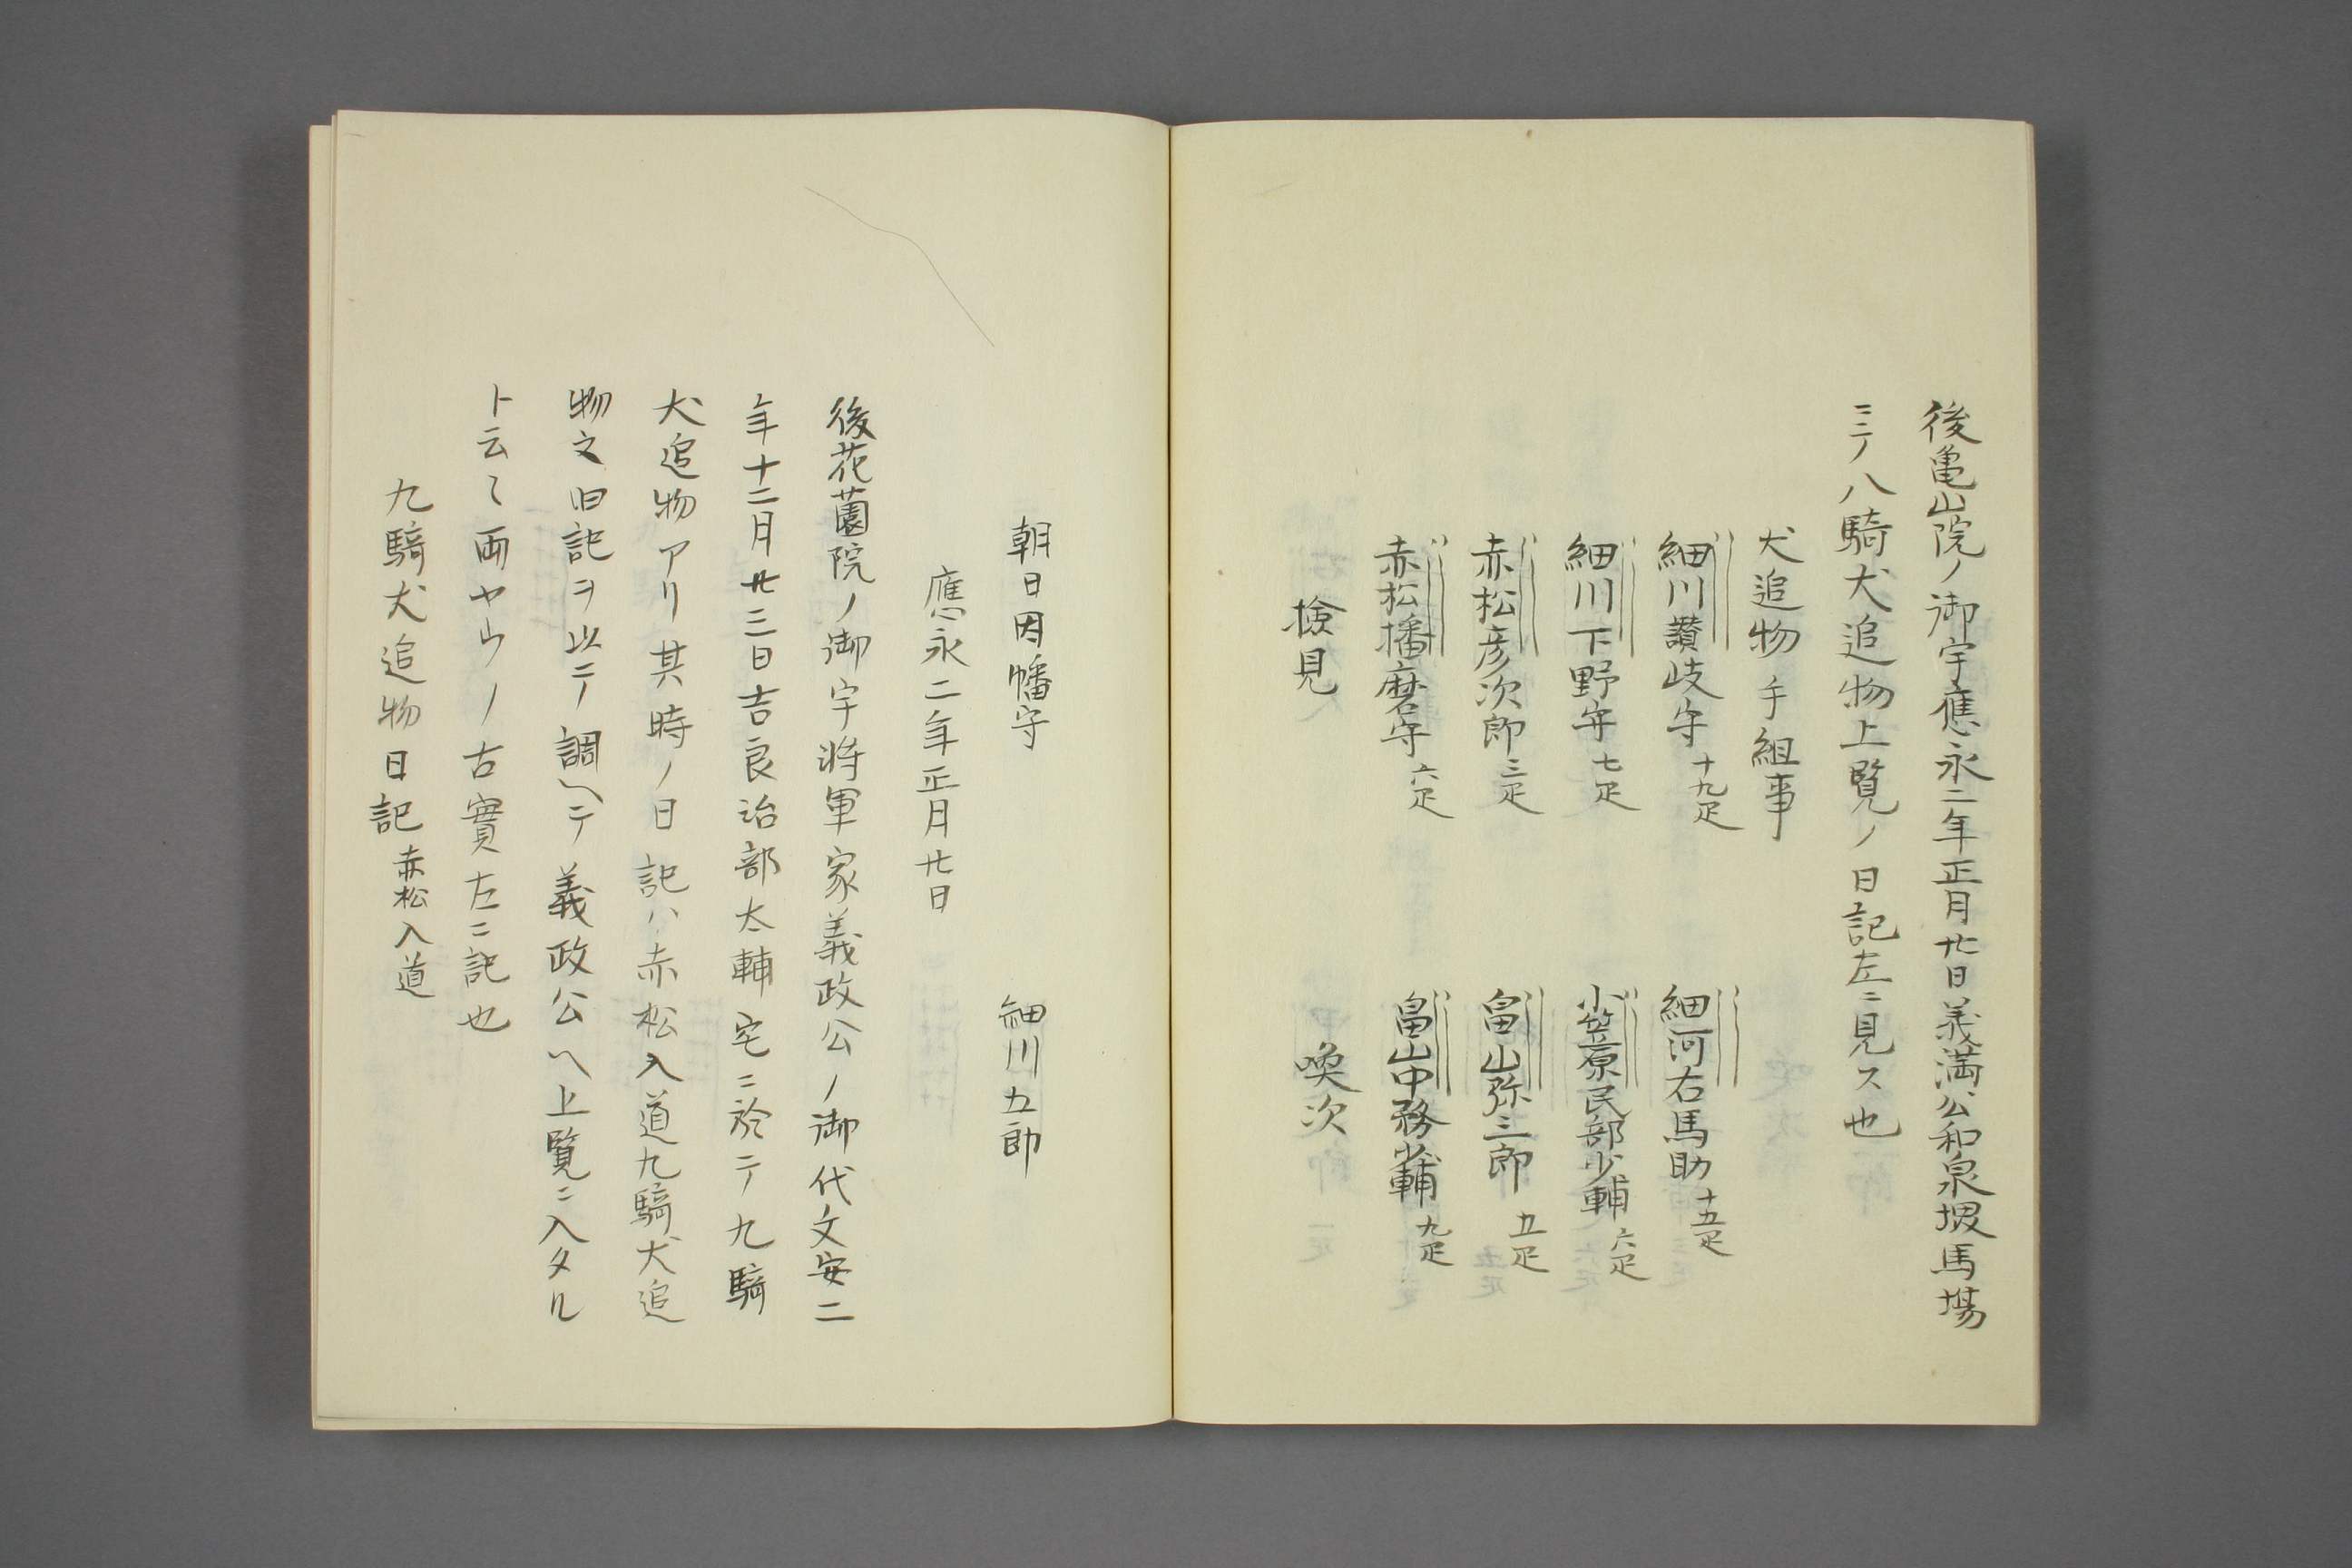 後亀山院ノ御宇應永二年正月廿日義満公和泉堺馬場
ニテノ八騎犬追物上覧ノ日記左ニ見ス也
犬追物手組事
細川讃岐守 十九疋 細河右馬助 十五疋
細川下野守 七疋 小笠原民部少輔 六疋
赤松彦次郎 三疋 畠山弥三郎 五疋
赤松播磨守 六疋 畠山中務少輔 九疋
検見 喚次
朝日因幡守 細川五郎
應永二年正月廿日
後花薗院ノ御宇将軍家義政公ノ御代文安二
年十二月廿三日吉良治部太輔宅ニ於テ九騎
犬追物アリ其時ノ日記ハ赤松入道九騎犬追
物文旧記ヲ以テ調ヘテ義政公ヘ上覧ニ入タル
ト云〻両ヤウノ古實左ニ記也
九騎犬追物日記 赤松入道